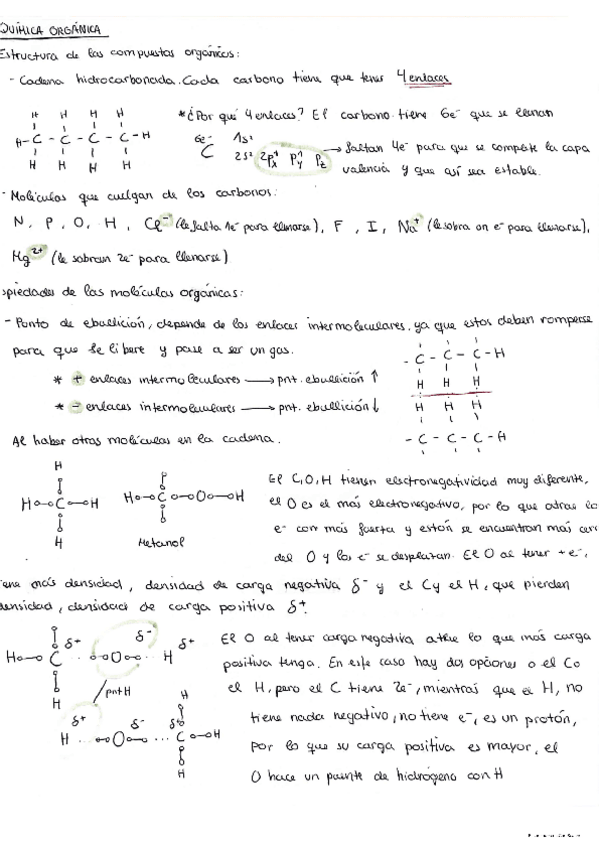 QUÍMICA ORGÁNICA
Estructura de los compuestos orgánicos:
- Cadena hidrocarbonada. Cada carbono tiene que tener 4 enlaces
H H H H
H - C - C - C - C - H
H H H H
*¿Por qué 4 enlaces? El carbono tiene 6e⁻ que se llenan
6e⁻ C 1s² 2s² 2px¹ py¹ pz → faltan 4e⁻ para que se complete la capa
valencia y que así sea estable.
- Moléculas que cuelgan de los carbonos:
N, P, O, H, Cl⁻ (le falta 1e⁻ para llenarse), F, I, Na⁺ (le sobra un e⁻ para llenarse),
Mg²⁺ (le sobran 2e⁻ para llenarse)
opiedades de las moléculas orgánicas:
- Punto de ebullición, depende de los enlaces intermoleculares, ya que estos deben romperse
para que se libere y pase a ser un gas.
* + enlaces intermoleculares → pnt. ebullición ↑
* - enlaces intermoleculares → pnt. ebullición ↓
- C - C - C - H
H H H
H H H
- C - C - C - H
Al haber otras moléculas en la cadena.
H
H C H
H
H C O H
Metanol
El C, O, H tienen electronegatividad muy diferente,
el O es el más electronegativo, por lo que atrae los
e⁻ con más fuerza y estos se encuentran más cer
del O y los e⁻ se desplazan. El O al tener + e⁻,
iene más densidad, densidad de carga negativa δ⁻ y el C y el H, que pierden
densidad, densidad de carga positiva δ⁺.
H C δ⁺ O δ⁻ H δ⁺
H
pnt H
H δ⁺ O δ⁻ C δ⁺ H
H
H
El O al tener carga negativa atrae lo que más carga
positiva tenga. En este caso hay dos opciones o el C o
el H, pero el C tiene 2e⁻, mientras que el H, no
tiene nada negativo, no tiene e⁻, es un protón,
por lo que su carga positiva es mayor, el
O hace un puente de hidrógeno con H